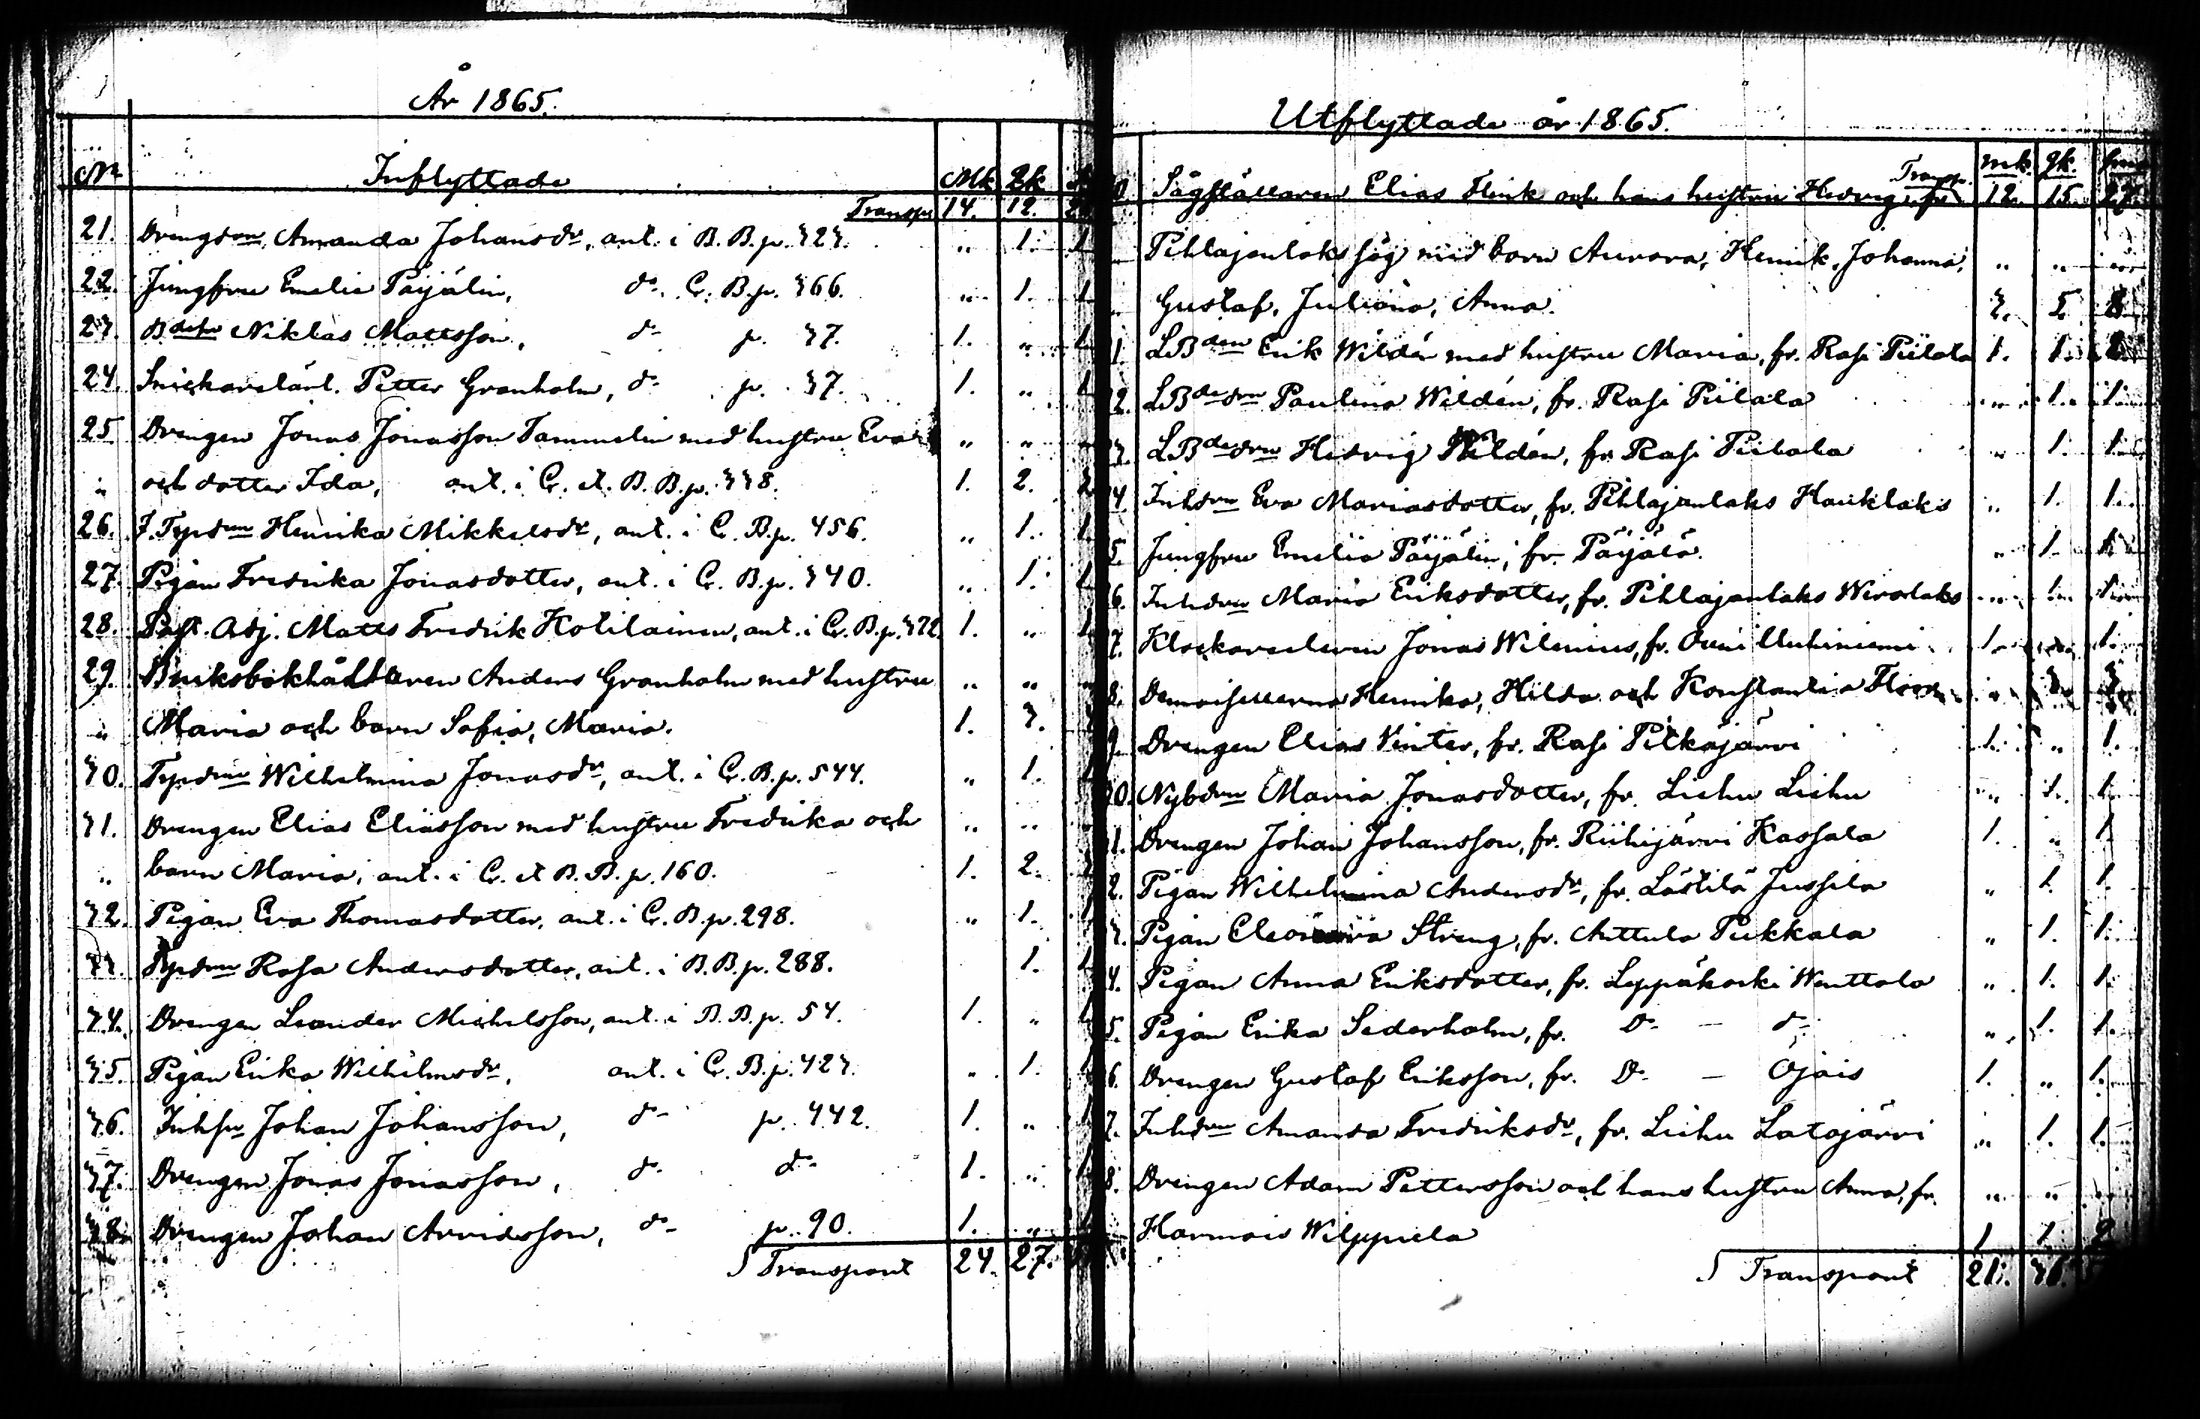 År 1865.
No Inflyttade Mk Qk
Transp. 14. 12.
21. Drengdrn Amanda Johansdr, ant. i B. B. p. 323. " 1. 1
22. Jungfru Emelie Päijälin, do C. B. p. 366. " 1. 1
23. Bdesn Niklas Mattsson, do p. 37. 1. " 1
24. Snickarelärl. Petter Granholm, do p. 37. 1. " 1
25 Drengen Jonas Jonasson Tammelin med hustru Eva " "
" och dotter Ida, ant. i C. et B. B. p. 338. 1. 2.
26. Tpdrn Henrika Mikkelsdr, ant. i C. B. p. 456. " 1. 1
27. Pigan Fredrika Jonasdotter, ant. i C. B. p. 340. " 1. 1
28. Past. Adj. Matts Fredrik Kotilainen, ant. i C. B. p. 322 1. " 1
29. Bruksbokhållaren Anders Granholm med hustru " "
" Maria och barn Sofia, Maria. 1. 3.
30. Tpdrn Wilhelmina Jonasdr, ant. i C. B. p. 544. " 1. 1
31. Drengen Elias Eliasson med hustru Fredrika och " "
" barn Maria, ant. i C. et B. B. p. 160. 1. 2.
32. Pigan Eva Thomasdotter, ant. i C. B. p. 298. " 1. 1
33. Tpdrn Rosa Andersdotter, ant. i B. B. p. 288. 1. 1
34. Drengen Leander Michelsson, ant. i B. B. p. 54. 1. " 1
35. Pigan Erika Wilhelmsdr, ant. i C. B. p. 423. " 1. 1
36. Inhsn Johan Johansson, do p. 442. 1. " 1
37. Drengen Jonas Jonasson, do do 1. " 1
38. Drengen Johan Arvidsson, do p. 90. 1. " 1
Transport 24. 27.
Utflyttade år 1865.
Transp. mk. qk.
0. Sågställaren Elias Flink och hans hustru Hedvig, fr. 12. 15. 27.
Pihlajanlaks såg med barn Aurora, Henrik, Johanna, " " "
Gustaf, Juliana, Anna. 3. 5. 8.
1. LBden Erik Wildén med hustru Maria, fr. Rasi Piilala 1. 1. 2.
2. LBdedrn Paulina Wildén, fr. Rasi Piilala " 1. 1.
3. LBdedrn Hedvig Wildén, fr. Rasi Piilala " 1. 1.
4. Inhdrn Eva Mariasdotter, fr. Pihlajanlaks Hauklaks " 1. 1.
5. Jungfru Emelia Päijälin, fr. Päijälä. " 1. 1.
6. Inhdrn Maria Eriksdotter, fr. Pihlajanlaks Wirolaks " 1. 1.
7. Klockareeleven Jonas Wilenius, fr. Ouni Uuhiniemi 1. " 1.
8. Demoisellerna Henrika, Hilda och Konstantia " 3. 3.
9. Drengen Elias Winter, fr. Rasi Pitkäjärvi 1. " 1.
0. Nybdrn Maria Jonasdotter, fr. Liehu Liehu " 1. 1.
1. Drengen Johan Johansson, fr. Riihijärvi Kassala 1. " 1
2. Pigan Wilhelmina Andersdr, fr. Lästilä Jussila " 1. 1.
3. Pigan Eleonora Streng, fr. Anttula Pekkala " 1. 1.
4. Pigan Anna Eriksdotter, fr. Leppäkoski Wenttola " 1. 1.
5. Pigan Erika Sederholm, fr. Do — do " 1. 1.
6. Drengen Gustaf Eriksson, fr. Do — Ojais 1. " 1.
7. Inhdrn Amanda Fredriksdr, fr. Liehu Latojärvi " 1. 1.
8. Drengen Adam Pettersson och hans hustru Anna, fr. " " "
Harmois Wilppula 1 1. 2
Transport 21. 36.